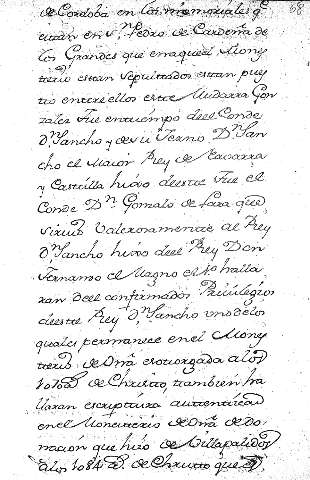 68
de Cordoba en los memoriales q.
estan en Sn. Pedro de Cardeña de
los Grandes que en aquel Mony
terio estan sepultados estan pues
tos entre ellos este Mudarra Gon
zales fue en tiempo de el Conde
Dn. Sancho y de su Yerno Dn. San
cho el Maior Rey de Navarra
y Castilla hijo de este fue el
Conde Dn. Gonzalo de Lara que
sirvió valerosamente al Rey
Dn. Sancho hijo de el Rey Don
Fernando el Magno
ran de el confirmados Privilegios
de este Rey Dn. Sancho uno de los
quales permanece en el Mony
terio de Oña
de Christo, tambien ha
llaran escriptura autentica
en el Monesterio de Oña de do
nacion que hizo de Villapalidos
a los 1084 as. de Christo que